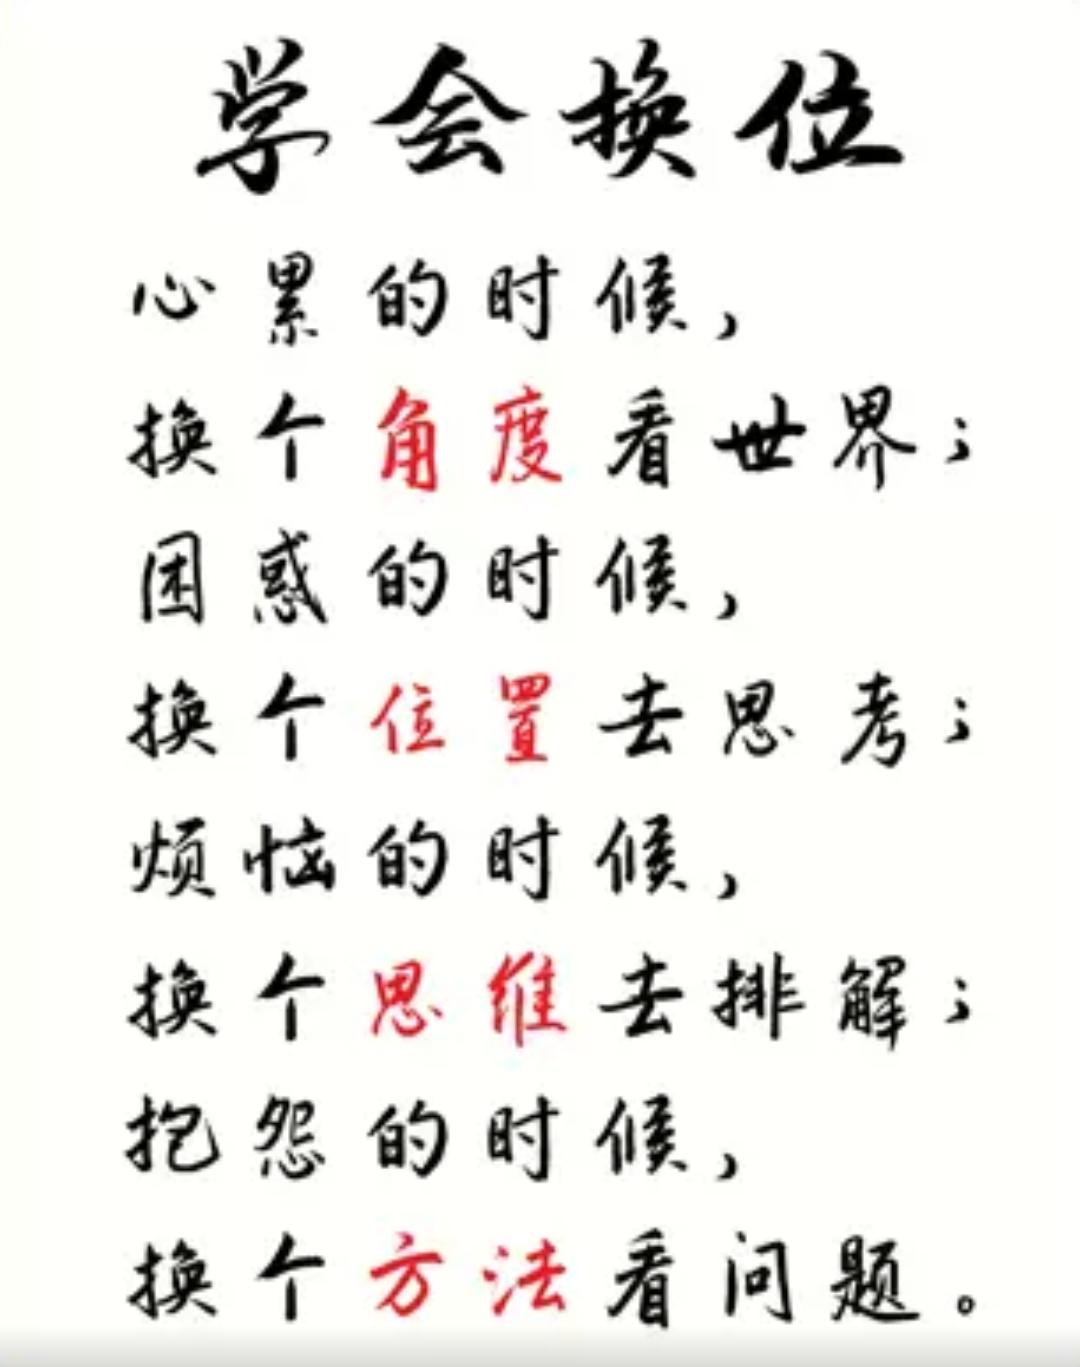 学会换位
心累的时候，
换个角度看世界；
困惑的时候，
换个位置去思考；
烦恼的时候，
换个思维去排解；
抱怨的时候，
换个方法看问题。